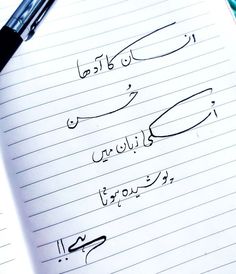 انسان کا آدھا
حُسن
اُسکی زبان میں
پوشیدہ ہوتا
ہے!!